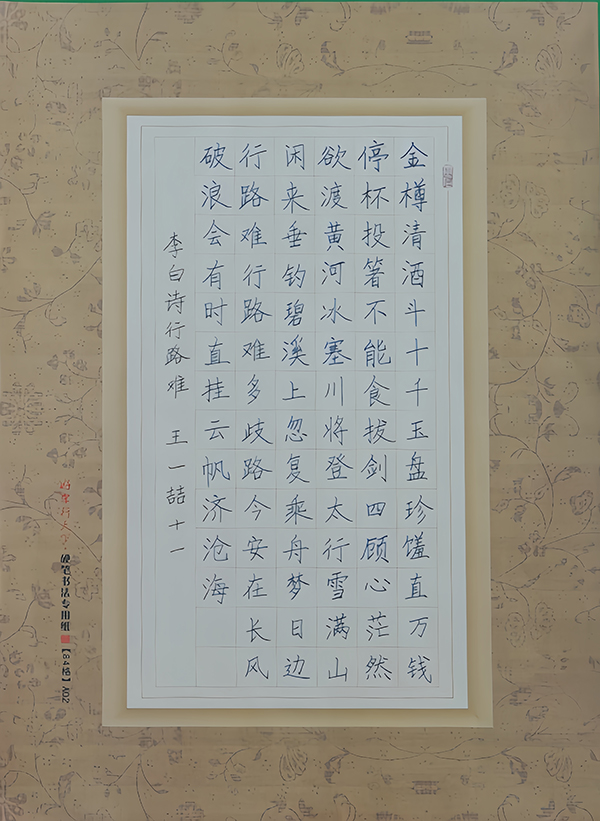 金樽清酒斗十千玉盘珍馐直万钱
停杯投箸不能食拔剑四顾心茫然
欲渡黄河冰塞川将登太行雪满山
闲来垂钓碧溪上忽复乘舟梦日边
行路难行路难多歧路今安在长风
破浪会有时直挂云帆济沧海
李白诗行路难 王一喆十一
硬笔书法专用纸【84格】A02